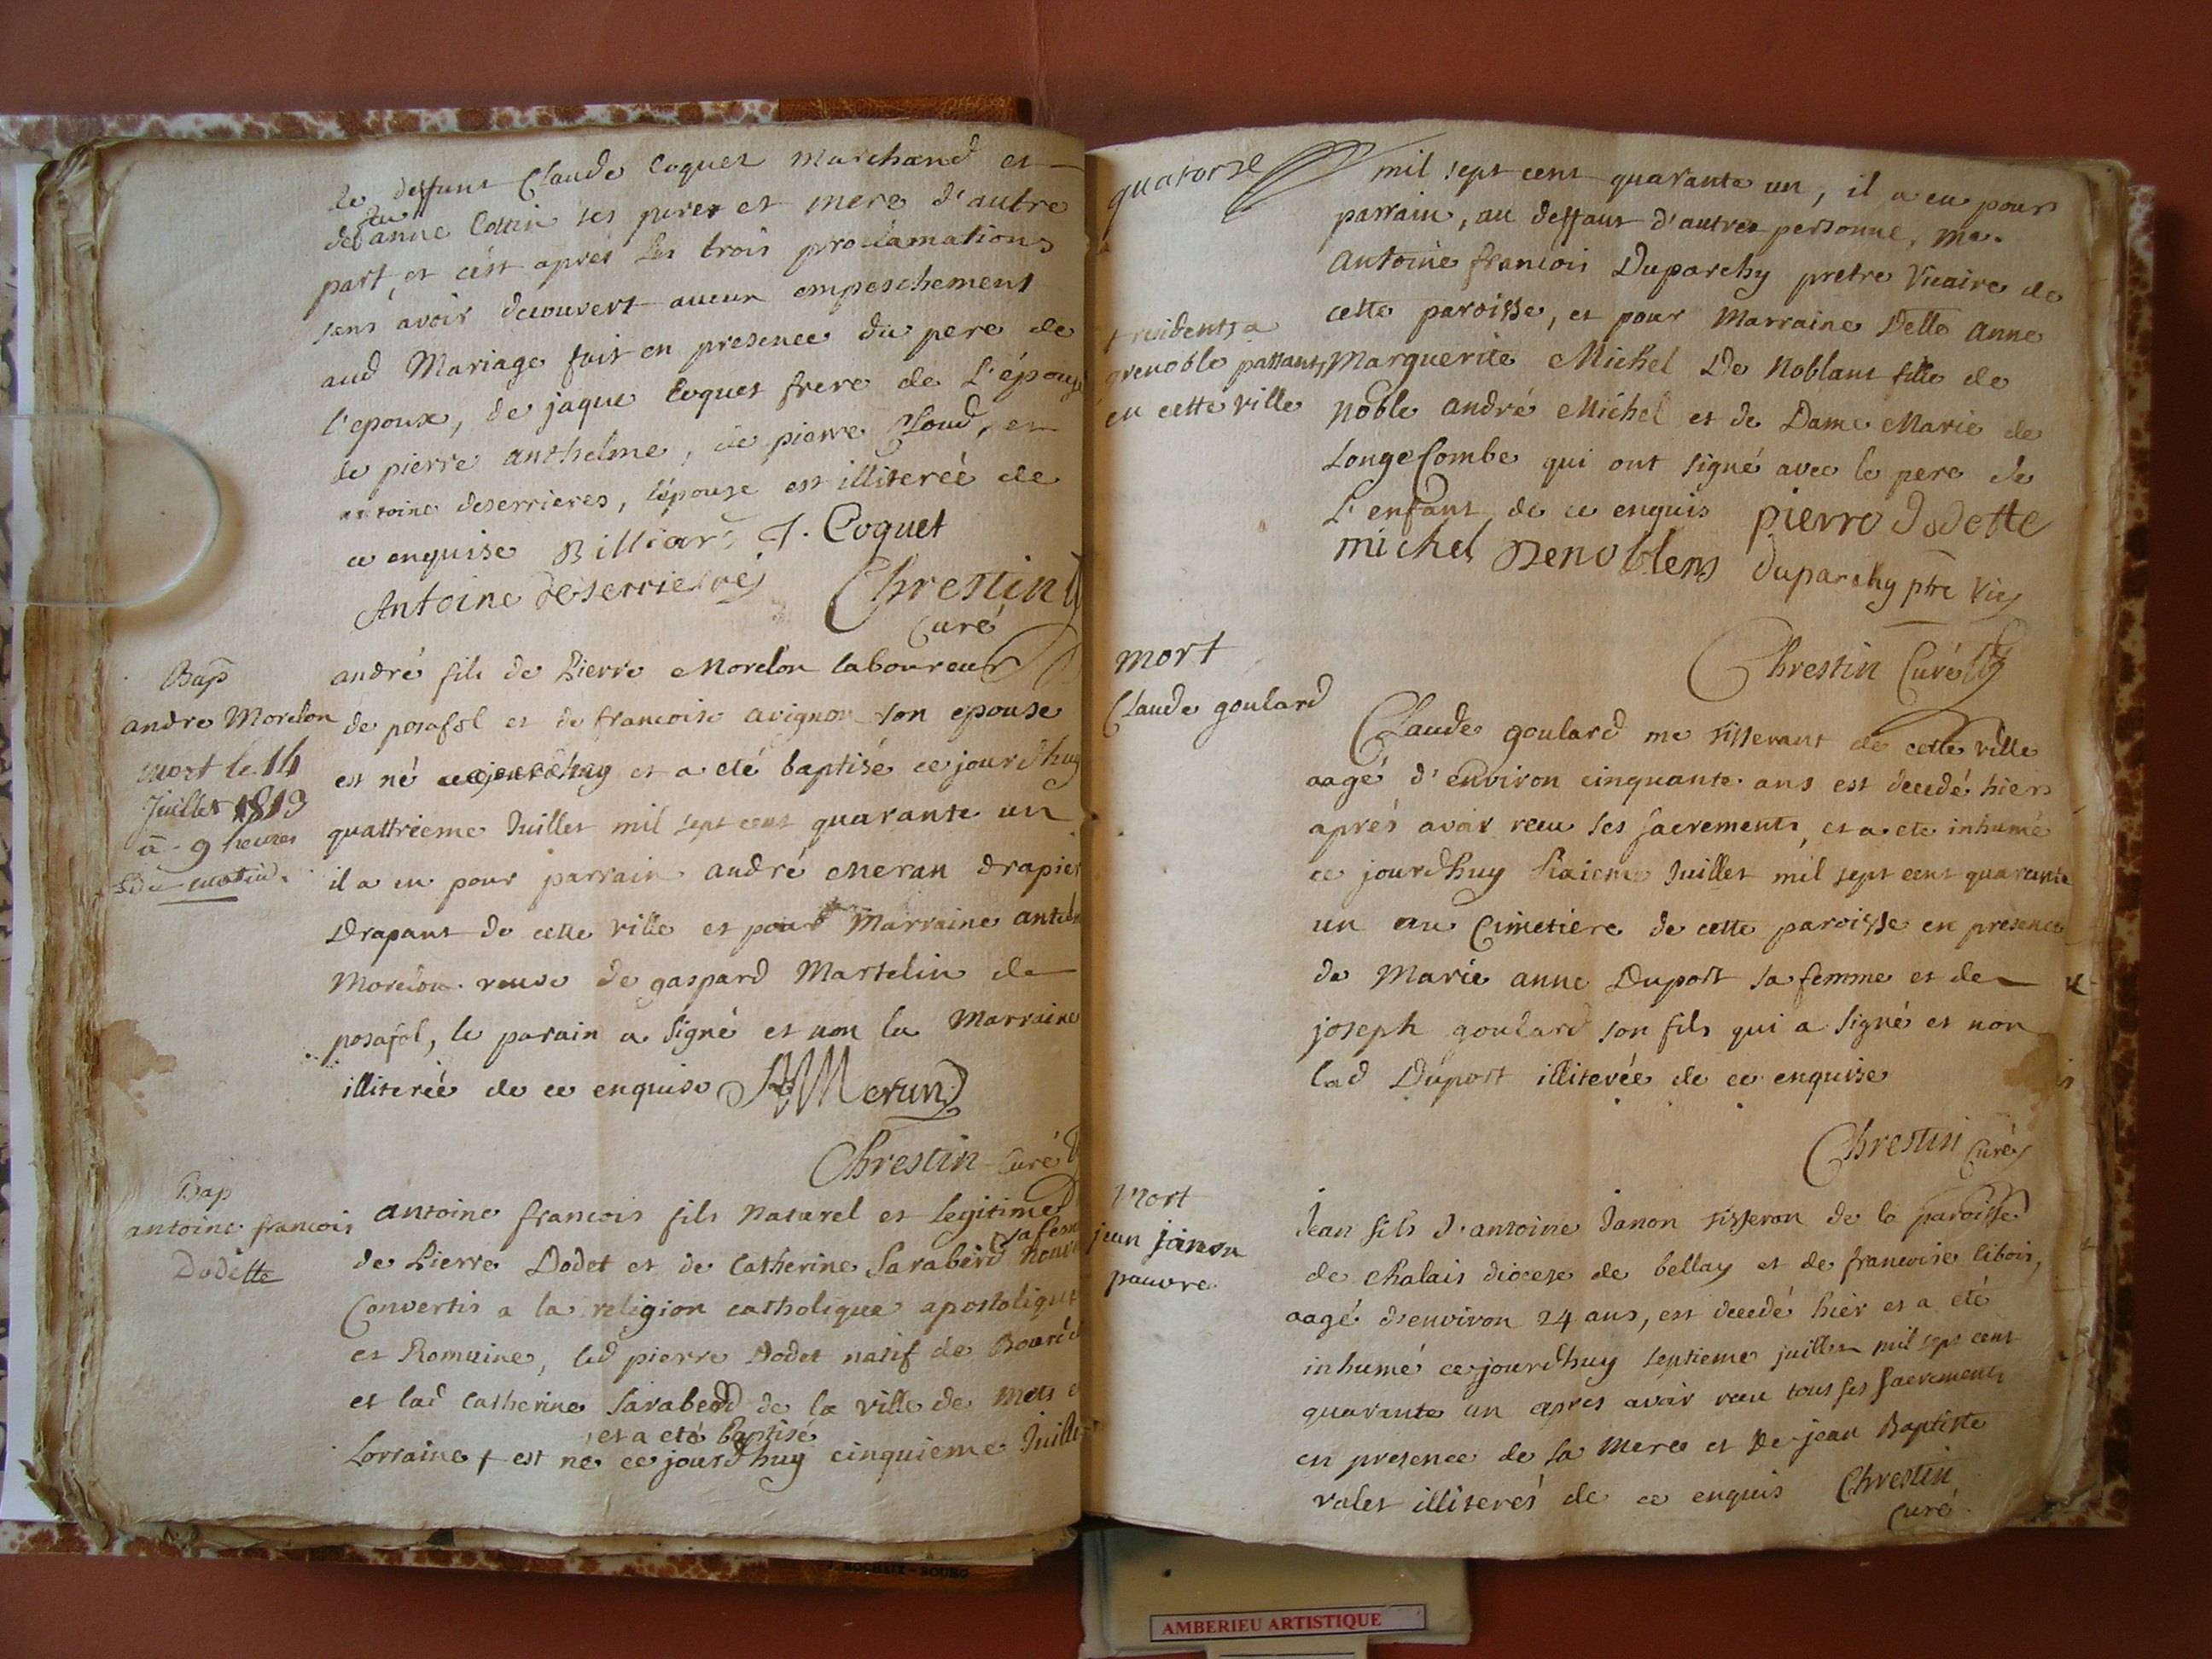 de deffunt Claude Coquet Marchand et
de feu anne Cottin ses pere et mere d'autre
part, et c'est aprés les trois proclamations
sans avoir decouvert aucun empeschement
aud Mariage fait en presence du pere de
l'epoux, de jaque Coquet frere de L'épouse
de pierre anthelme, de pierre Cloud, et
antoine deserrieres, l'épouse est illiterée de
ce enquise Billiard J. Coquet
Antoine deserrieres Chrestin
Curé
Bap
andre Morelon
mort le 14
Juillet 1819
à 9 heures
Du matin.
andré fils de Pierre Morelon laboureur
de posafol et de francoise avignon son epouse
est né et a eté baptisé ce jourdhuy
quattrieme Juillet mil sept cent quarante un
il a eu pour parrain andré Meran drapier
Drapant de cette ville et pour Marraine
Morelon veuve de gaspard Martelin de
posafol, le parain a signé et non la Marraine
illiterée de ce enquise Meran
Chrestin Curé
Bap
antoine francois
Dodette
antoine francois fils Naturel et legitime
de Pierre Dodet et de Catherine Saraberd sa femme
Convertis a la religion catholique apostolique
et Romaine, led pierre Dodet natif de
et lad Catherine Saraberd de la ville de Mets
Lorraine + est né et a eté Baptisé ce jourdhuy cinquieme Juillet
quatorze
+ residents a
grenoble passants
en cette ville
mil sept cent quarante un, il a eu pour
parrain, au deffaut d'autre personne, me.
Antoine francois Duparchy pretre Vicaire de
cette paroisse, et pour Marraine Delle anne
Marguerite Michel De Noblans fille de
Noble andré Michel et de Dame Marie de
LongeCombe qui ont signé avec le pere de
L'enfant de ce enquis pierre dodette
michel Denoblens duparchy ptre Vic
Chrestin Curé
mort
Claude goulard
Claude goulard me tisserant de cette ville
aagé d'environ cinquante ans est decedé hier
aprés avoir receu ses sacrements, et a ete inhumé
ce jourdhuy sixieme Juillet mil sept cent quarante
un au Cimetiere de cette paroisse en presence
de Marie anne Duport sa femme et de
joseph goulard son fils qui a signé et non
lad Duport illiterée de ce enquise
Chrestin Curé
mort
jean janon
pauvre.
Jean fils d'antoine Janon tisseran de la paroisse
de Chalais diocese de bellay et de francoise libois,
aagé d'environ 24 ans, est decedé hier et a eté
inhumé ce jourdhuy septieme juillet mil sept cent
quarante un apres avoir receu tous ses sacrements
en presence de sa Mere et de jean Baptiste
valet illiterés de ce enquis Chrestin
Curé
AMBERIEU ARTISTIQUE